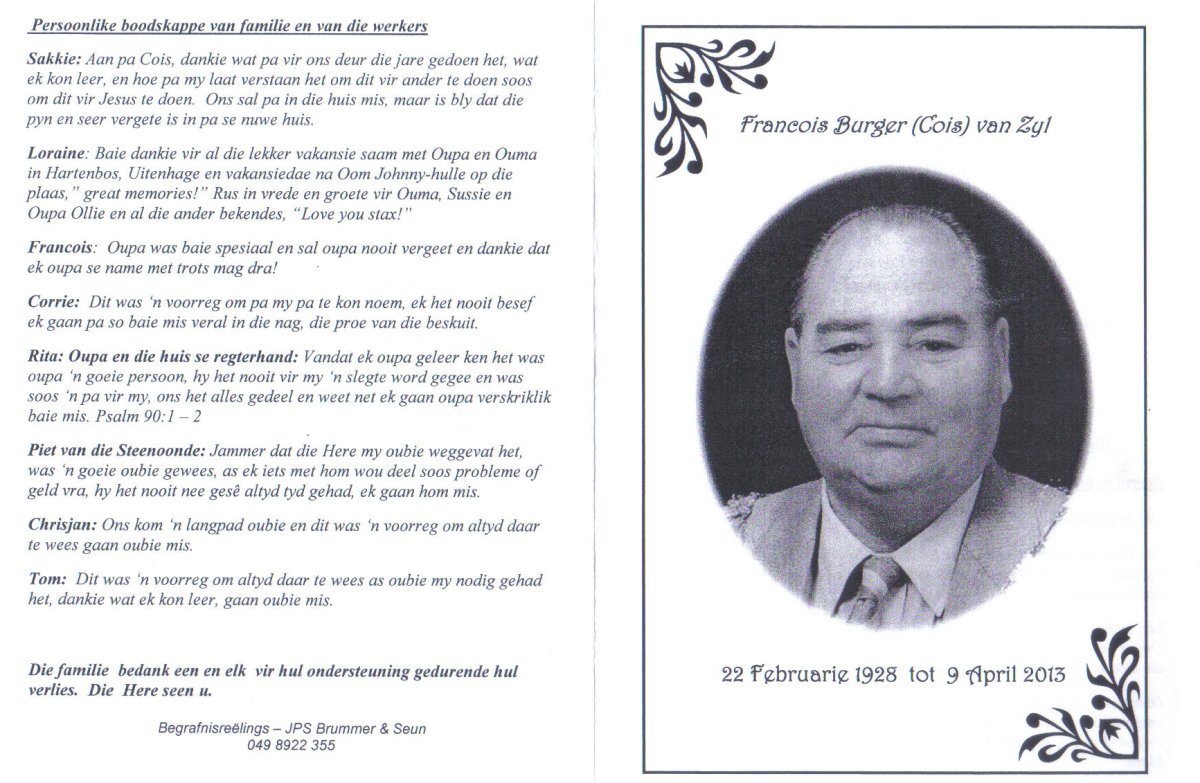 Persoonlike boodskappe van familie en van die werkers
Sakkie: Aan pa Cois, dankie wat pa vir ons deur die jare gedoen het, wat
ek kon leer, en hoe pa my laat verstaan het om dit vir ander te doen soos
om dit vir Jesus te doen. Ons sal pa in die huis mis, maar is bly dat die
pyn en seer vergete is in pa se nuwe huis.
Loraine: Baie dankie vir al die lekker vakansie saam met Oupa en Ouma
in Hartenbos, Uitenhage en vakansiedae na Oom Johnny-hulle op die
plaas,” great memories!” Rus in vrede en groete vir Ouma, Sussie en
Oupa Ollie en al die ander bekendes, “Love you stax!”
Francois: Oupa was baie spesiaal en sal oupa nooit vergeet en dankie dat
ek oupa se name met trots mag dra!
Corrie: Dit was ‘n voorreg om pa my pa te kon noem, ek het nooit besef
ek gaan pa so baie mis veral in die nag, die proe van die beskuit.
Rita: Oupa en die huis se regterhand: Vandat ek oupa geleer ken het was
oupa ‘n goeie persoon, hy het nooit vir my ‘n slegte word gegee en was
soos ‘n pa vir my, ons het alles gedeel en weet net ek gaan oupa verskriklik
baie mis. Psalm 90:1 – 2
Piet van die Steenoonde: Jammer dat die Here my oubie weggevat het,
was ‘n goeie oubie gewees, as ek iets met hom wou deel soos probleme of
geld vra, hy het nooit nee gesê altyd tyd gehad, ek gaan hom mis.
Chrisjan: Ons kom ‘n langpad oubie en dit was ‘n voorreg om altyd daar
te wees gaan oubie mis.
Tom: Dit was ‘n voorreg om altyd daar te wees as oubie my nodig gehad
het, dankie wat ek kon leer, gaan oubie mis.
Die familie bedank een en elk vir hul ondersteuning gedurende hul
verlies. Die Here seen u.
Begrafnisreëlings – JPS Brummer & Seun
049 8922 355
Francois Burger (Cois) van Zyl
22 Februarie 1928 tot 9 April 2013